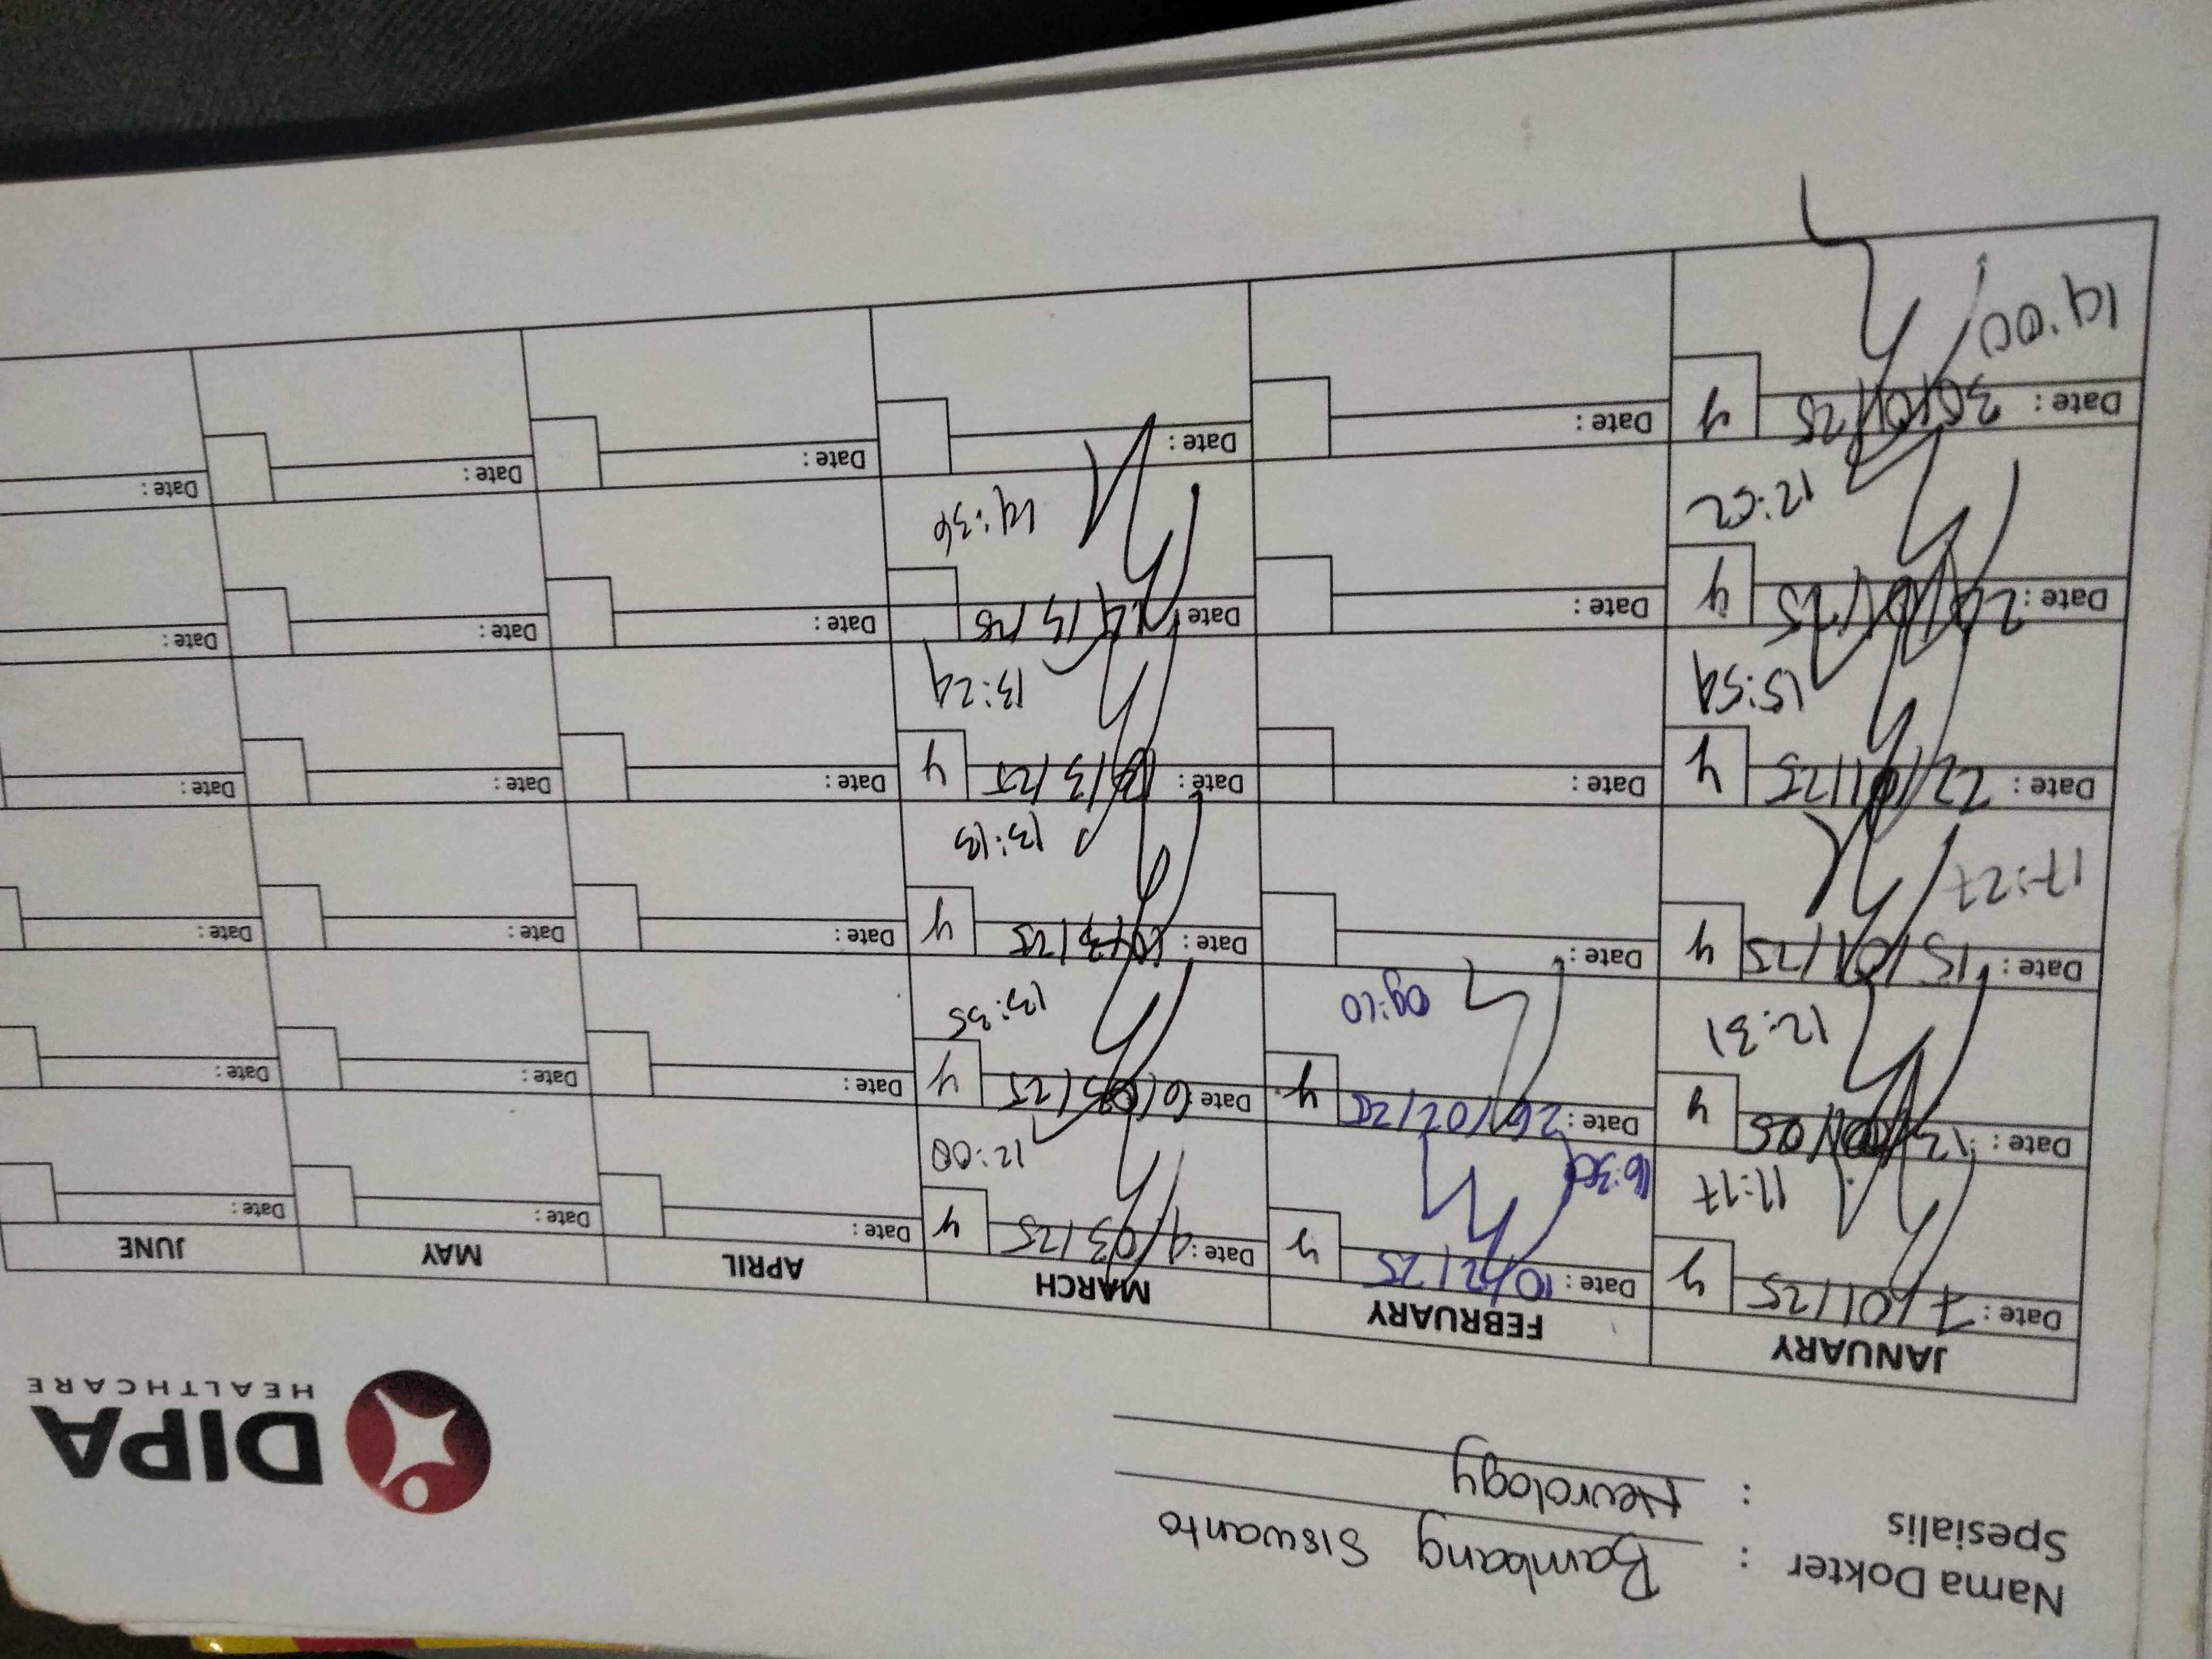 Nama Dokter : Bambang Siswanto
Spesialis : Neurology
DIPA
HEALTHCARE
JANUARY FEBRUARY MARCH APRIL MAY JUNE
Date : 7/01/25 y Date : 10/2/25 y Date : 4/03/25 y Date : Date : Date :
11:17 16:30 12:00
Date : 13/01/05 y Date : 26/02/25 y Date : 6/03/25 y Date : Date : Date :
12:31 09:10 13:35
Date : 15/01/25 y Date : Date : 10/3/25 y Date : Date : Date :
17:27 13:13
Date : 22/01/25 y Date : Date : /3/25 y Date : Date : Date :
15:54 13:24
Date : y Date : Date : Date : Date : Date :
12:52 14:36
Date : 30/01/25 y Date : Date : Date : Date : Date :
14.00